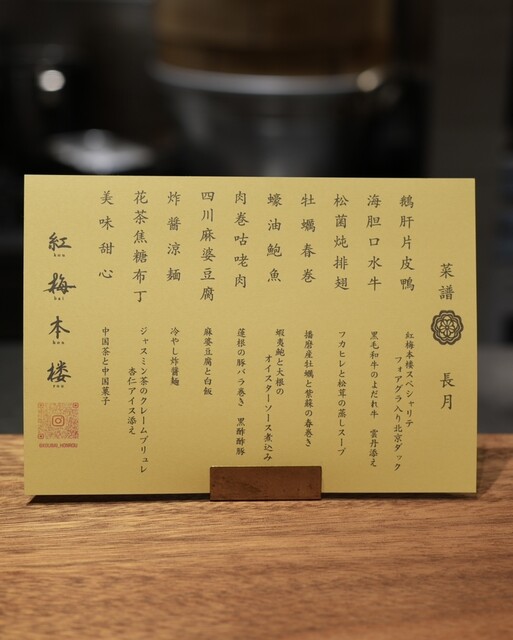 菜譜
長月
鵝肝片皮鴨
紅梅本楼スペシャリテ
フォアグラ入り北京ダック
海胆口水牛
黒毛和牛のよだれ牛 雲丹添え
松菌炖排翅
フカヒレと松茸の蒸しスープ
牡蠣春巻
播磨産牡蠣と紫蘇の春巻き
蠔油鮑魚
蝦夷鮑と大根の
オイスターソース煮込み
肉巻咕咾肉
蓮根の豚バラ巻き 黒酢酢豚
四川麻婆豆腐
麻婆豆腐と白飯
炸醤涼麺
冷やし炸醤麺
花茶焦糖布丁
ジャスミン茶のクレームブリュレ
杏仁アイス添え
美味甜心
中国茶と中国菓子
紅梅本楼